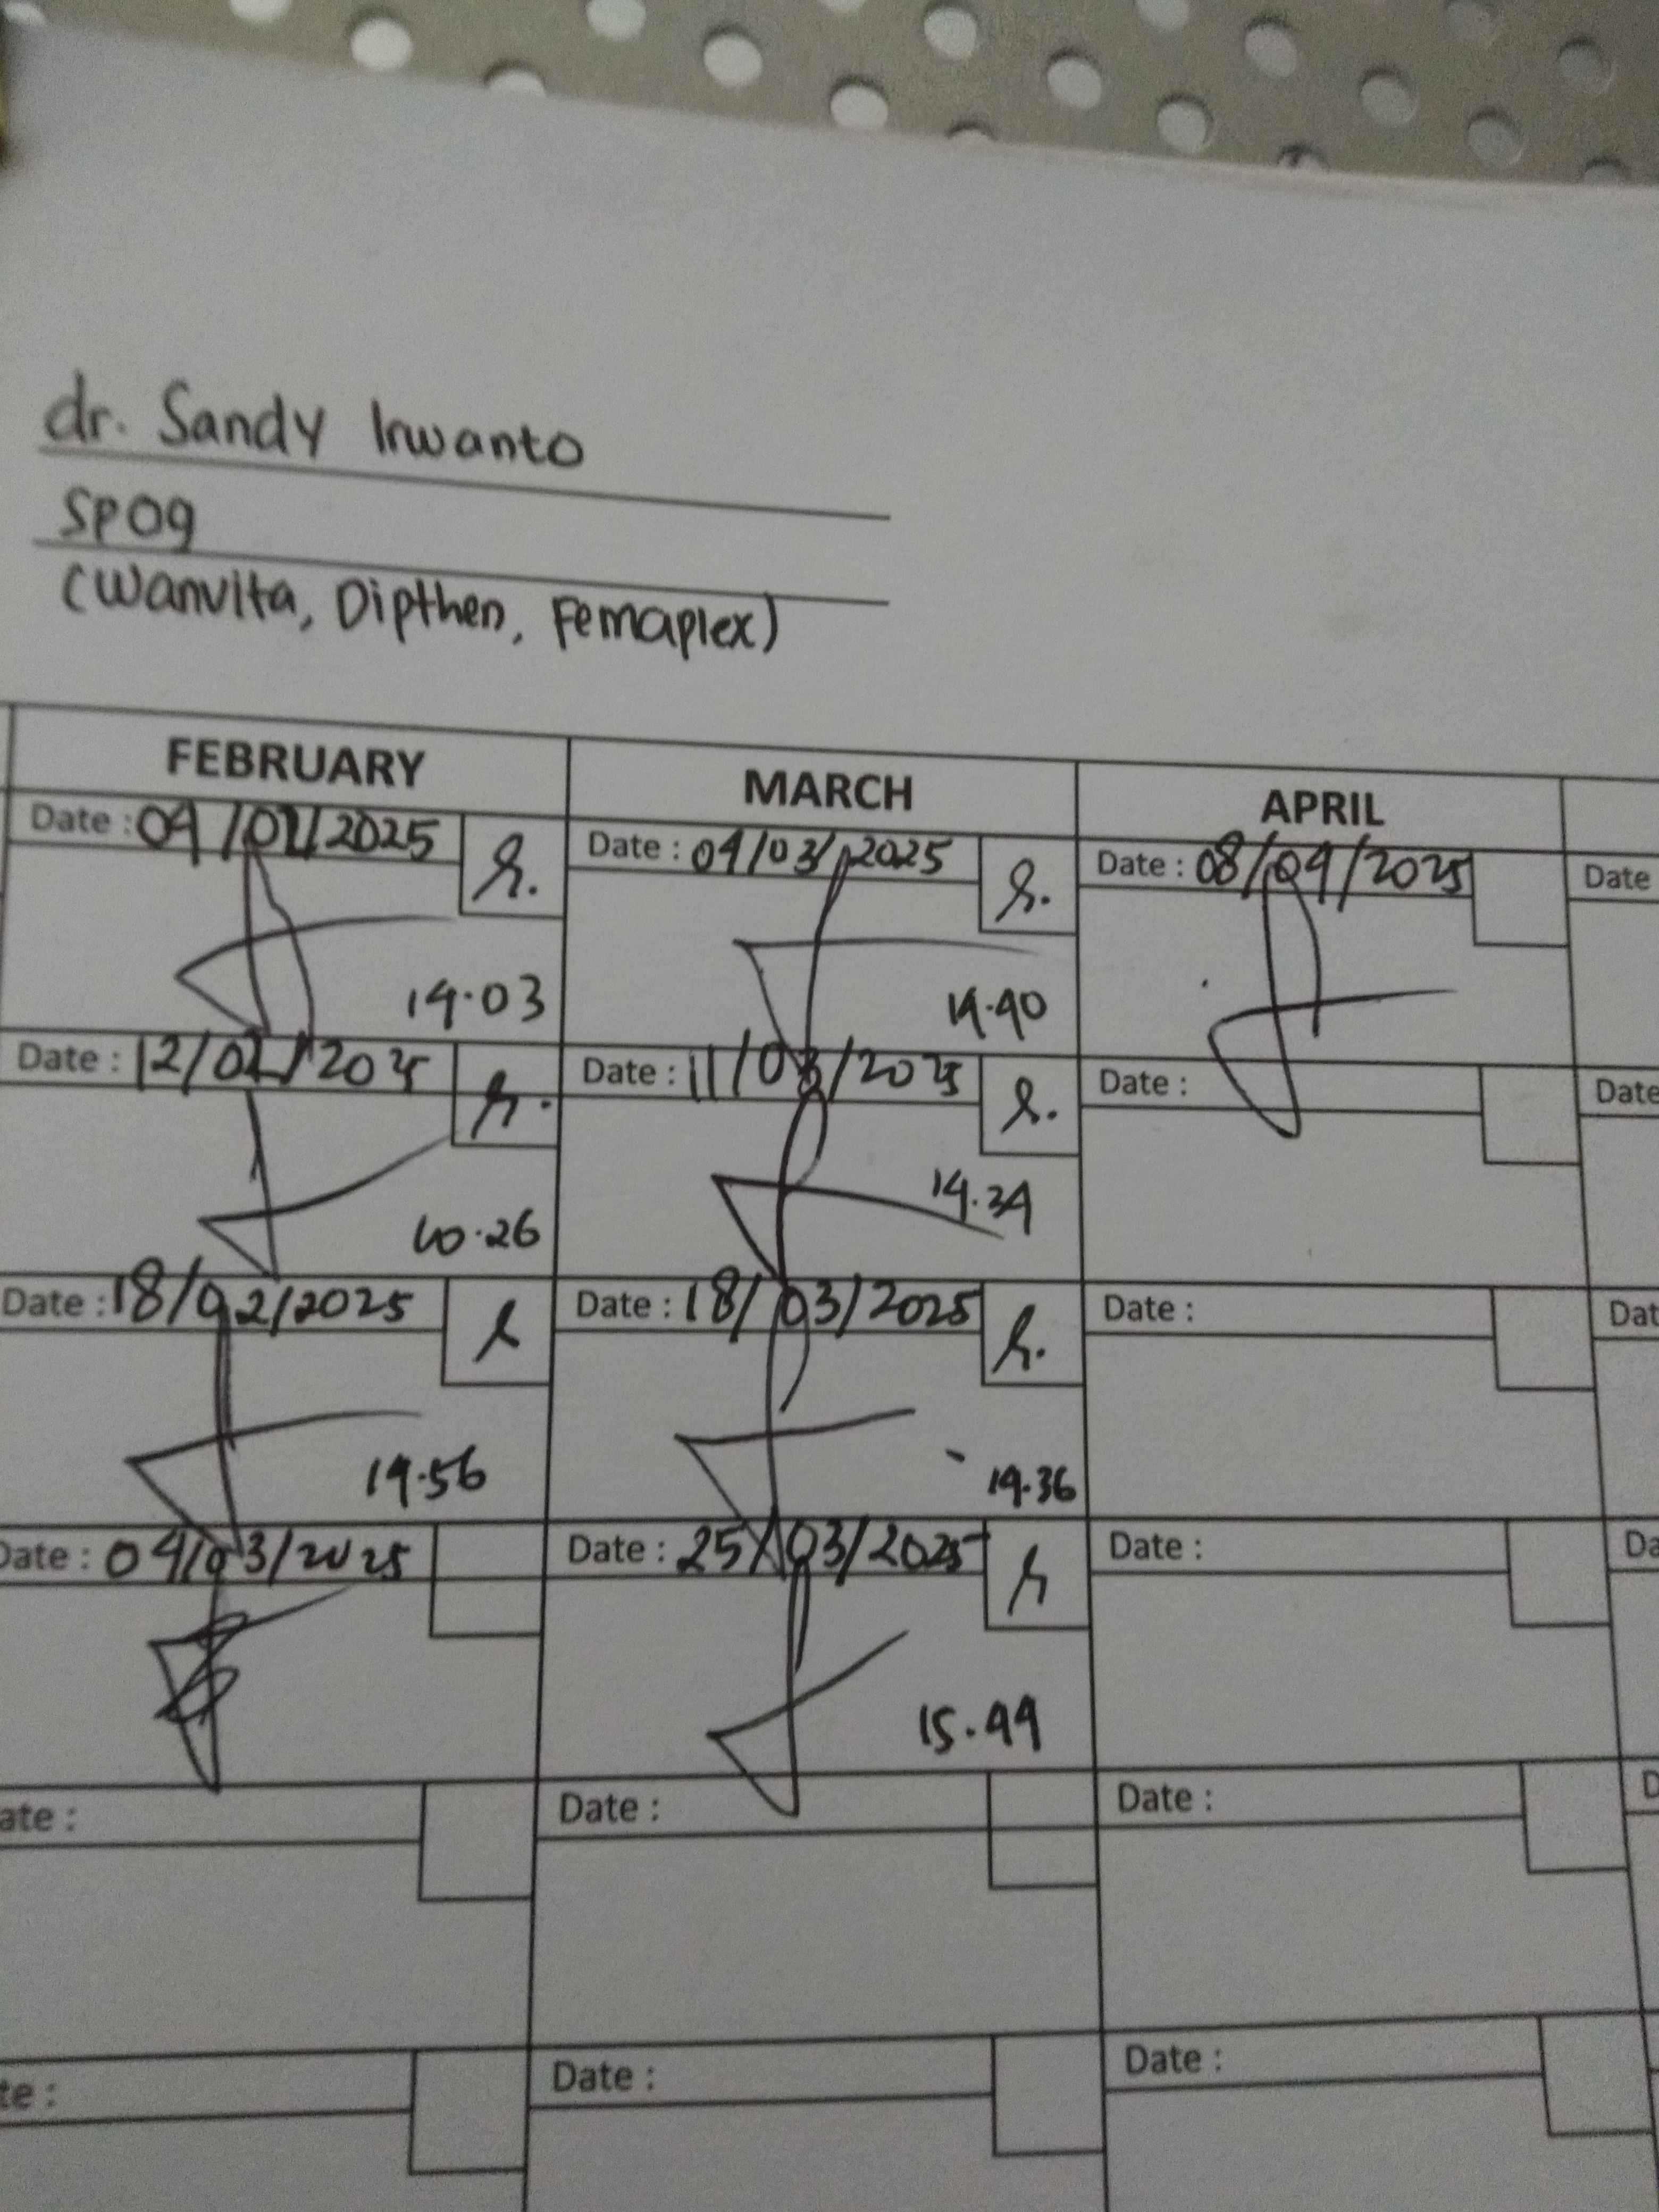 dr. Sandy Irwanto
SPOG
(Wanvita, Dipthen, Femaplex)
FEBRUARY MARCH APRIL
Date : 04/02/2025 Date : 04/03/2025 Date : 08/04/2025 Date
14.03 14.40
Date : 12/02/2025 Date : 11/03/2025 Date : Date
10.26 14.34
Date : 18/02/2025 Date : 18/03/2025 Date : Dat
14.56 14.36
Date : 04/03/2025 Date : 25/03/2025 Date : Da
15.44
ate : Date : Date : D
te : Date : Date :